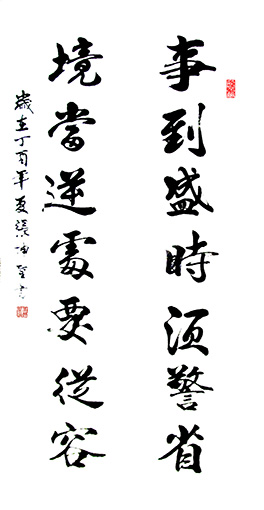 事到盛時須警省
境當逆處要從容
歲在丁酉年夏張書